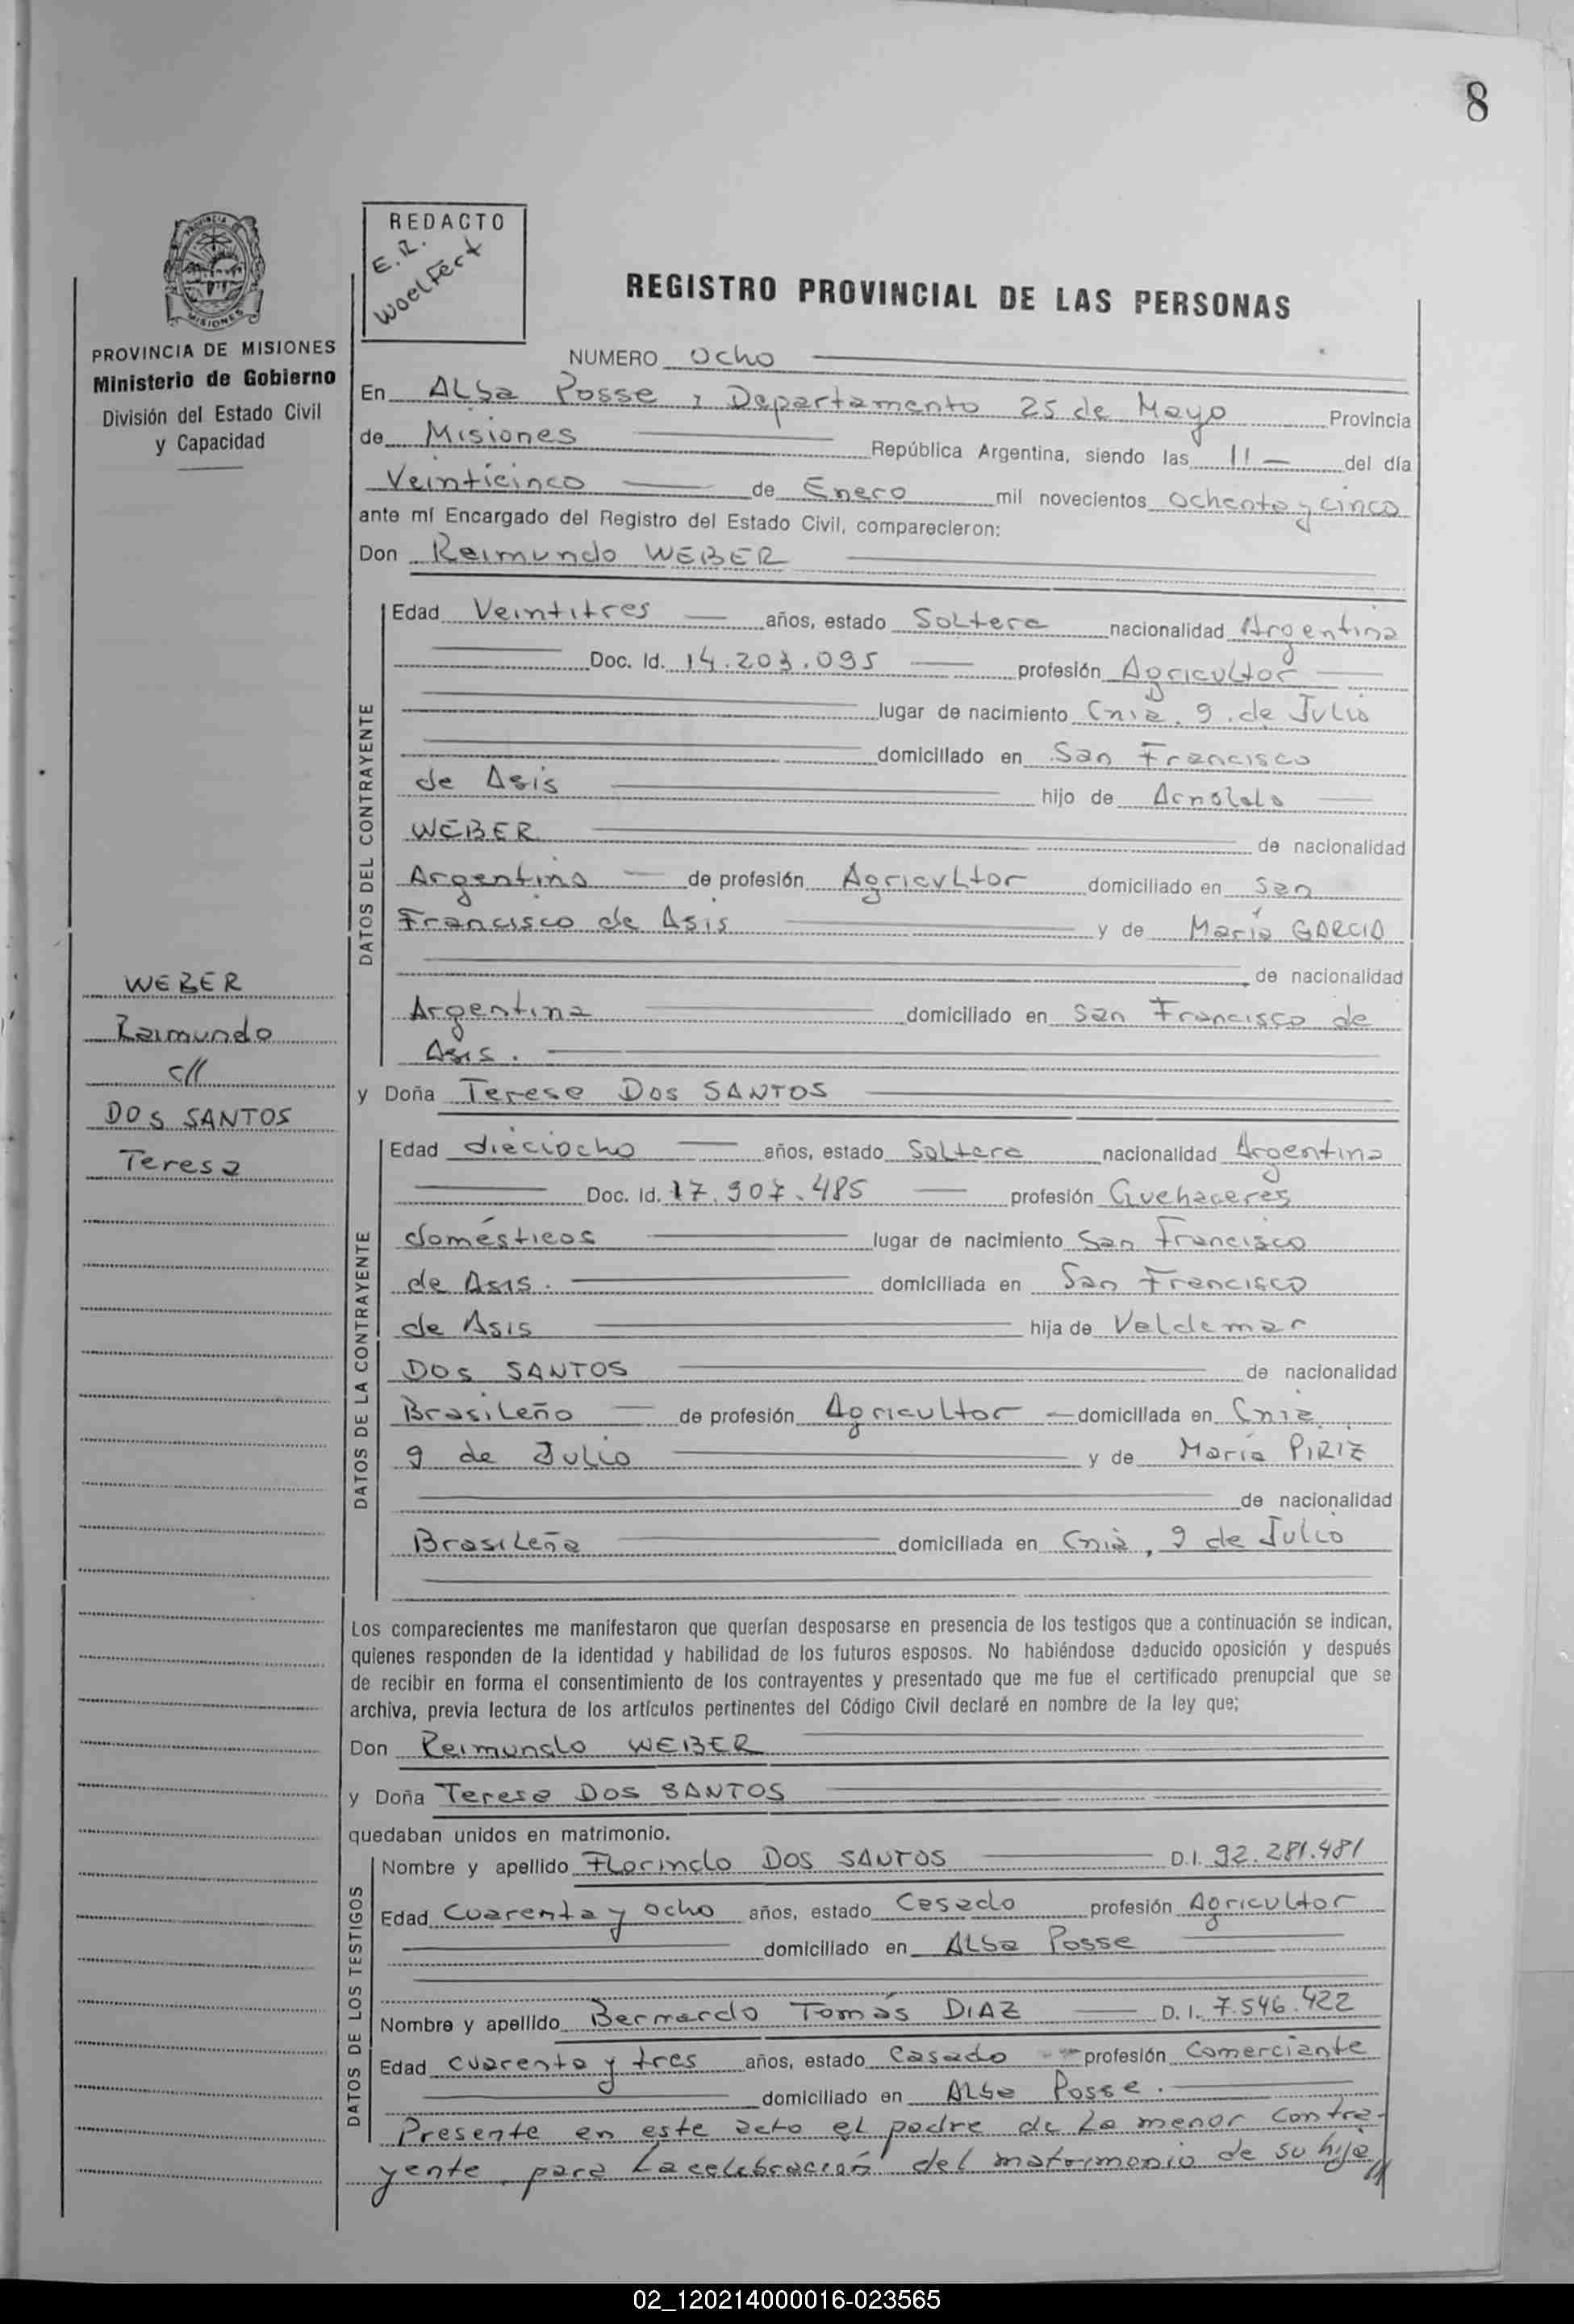 8
PROVINCIA DE MISIONES
MISIONES
PROVINCIA DE MISIONES
Ministerio de Gobierno
División del Estado Civil
y Capacidad
REDACTO
E.R.
Woelfert
REGISTRO PROVINCIAL DE LAS PERSONAS
NUMERO Ocho
En Alba Posse, Departamento 25 de Mayo Provincia
de Misiones República Argentina, siendo las 11 — del día
Veinticinco de Enero mil novecientos ochenta y cinco
ante mí Encargado del Registro del Estado Civil, comparecieron:
Don Raimundo WEBER
DATOS DEL CONTRAYENTE
Edad Veintitres años, estado Soltero nacionalidad Argentina
Doc. Id. 14.203.095 profesión Agricultor
lugar de nacimiento Cnia. 9 de Julio
domiciliado en San Francisco
de Asis hijo de Arnoldo
WEBER de nacionalidad
Argentino de profesión Agricultor domiciliado en San
Francisco de Asis y de María GARCIA
de nacionalidad
Argentina domiciliado en San Francisco de
Asis.
y Doña Teresa DOS SANTOS
DATOS DE LA CONTRAYENTE
Edad dieciocho años, estado Soltera nacionalidad Argentina
Doc. Id. 17.907.485 profesión Quehaceres
domésticos lugar de nacimiento San Francisco
de Asis. domiciliada en San Francisco
de Asis hija de Valdemar
DOS SANTOS de nacionalidad
Brasileño de profesión Agricultor domiciliada en Cnia
9 de Julio y de María PIRIZ
de nacionalidad
Brasileña domiciliada en Cnia, 9 de Julio
WEBER
Raimundo
c//
DOS SANTOS
Teresa
Los comparecientes me manifestaron que querían desposarse en presencia de los testigos que a continuación se indican,
quienes responden de la identidad y habilidad de los futuros esposos. No habiéndose deducido oposición y después
de recibir en forma el consentimiento de los contrayentes y presentado que me fue el certificado prenupcial que se
archiva, previa lectura de los artículos pertinentes del Código Civil declaré en nombre de la ley que;
Don Raimundo WEBER
y Doña Teresa DOS SANTOS
quedaban unidos en matrimonio.
DATOS DE LOS TESTIGOS
Nombre y apellido Florindo DOS SANTOS D.I. 92.281.481
Edad Cuarenta y ocho años, estado Casado profesión Agricultor
domiciliado en Alba Posse
Nombre y apellido Bernardo Tomás DIAZ D.I. 7.546.422
Edad cuarenta y tres años, estado Casado profesión Comerciante
domiciliado en Alba Posse.
Presente en este acto el padre de la menor contra-
yente, para la celebración del matrimonio de su hija//
02_120214000016-023565